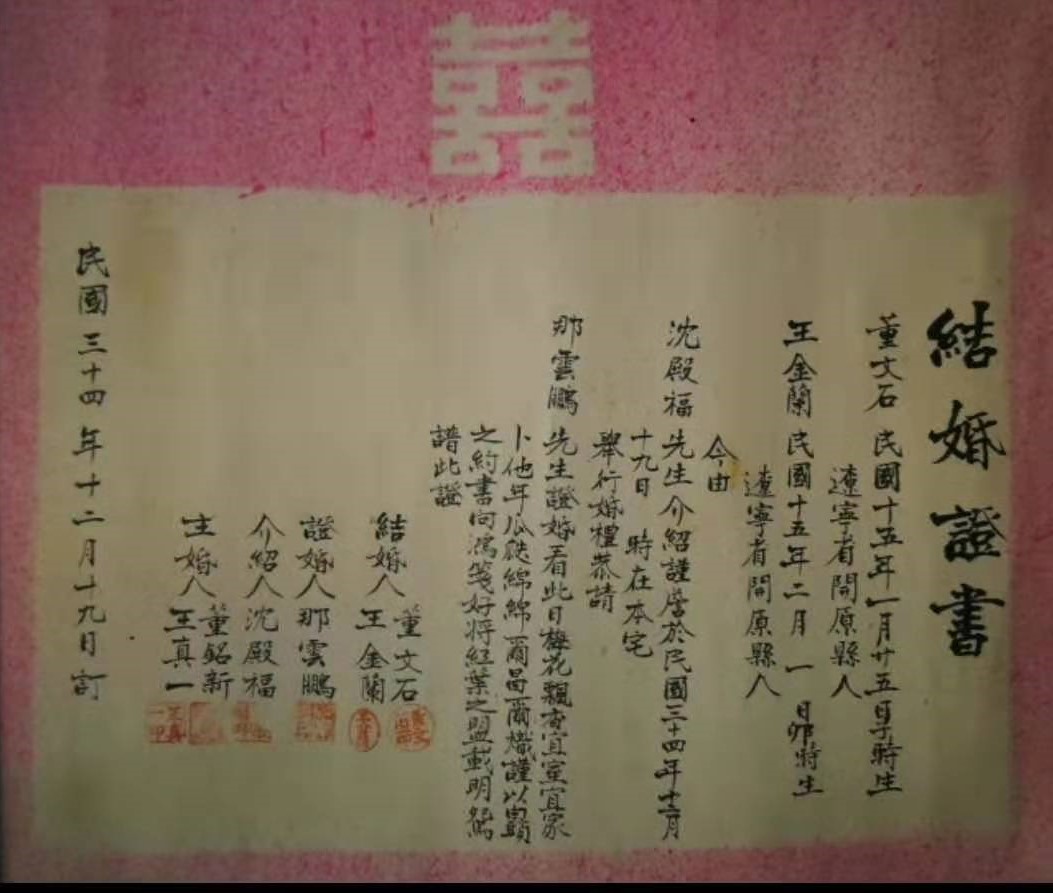 囍
結婚證書
董文石 民國十五年一月廿五日子時生
遼寧省開原縣人
王金蘭 民國十五年二月 一 日卯時生
遼寧省開原縣人
今由
沈殿福 先生介紹謹詹於民國三十四年十二月
十九日 時在本宅
舉行婚禮恭請
那雲鵬 先生證婚看此日梅花飄香宜室宜家
卜他年瓜瓞綿綿爾昌爾熾謹以白頭
之約書向鴻箋好將紅葉之盟載明鴛
譜此證
結婚人 董文石
王金蘭
證婚人 那雲鵬
介紹人 沈殿福
主婚人 董銘新
王真一
民國三十四年十二月十九日訂